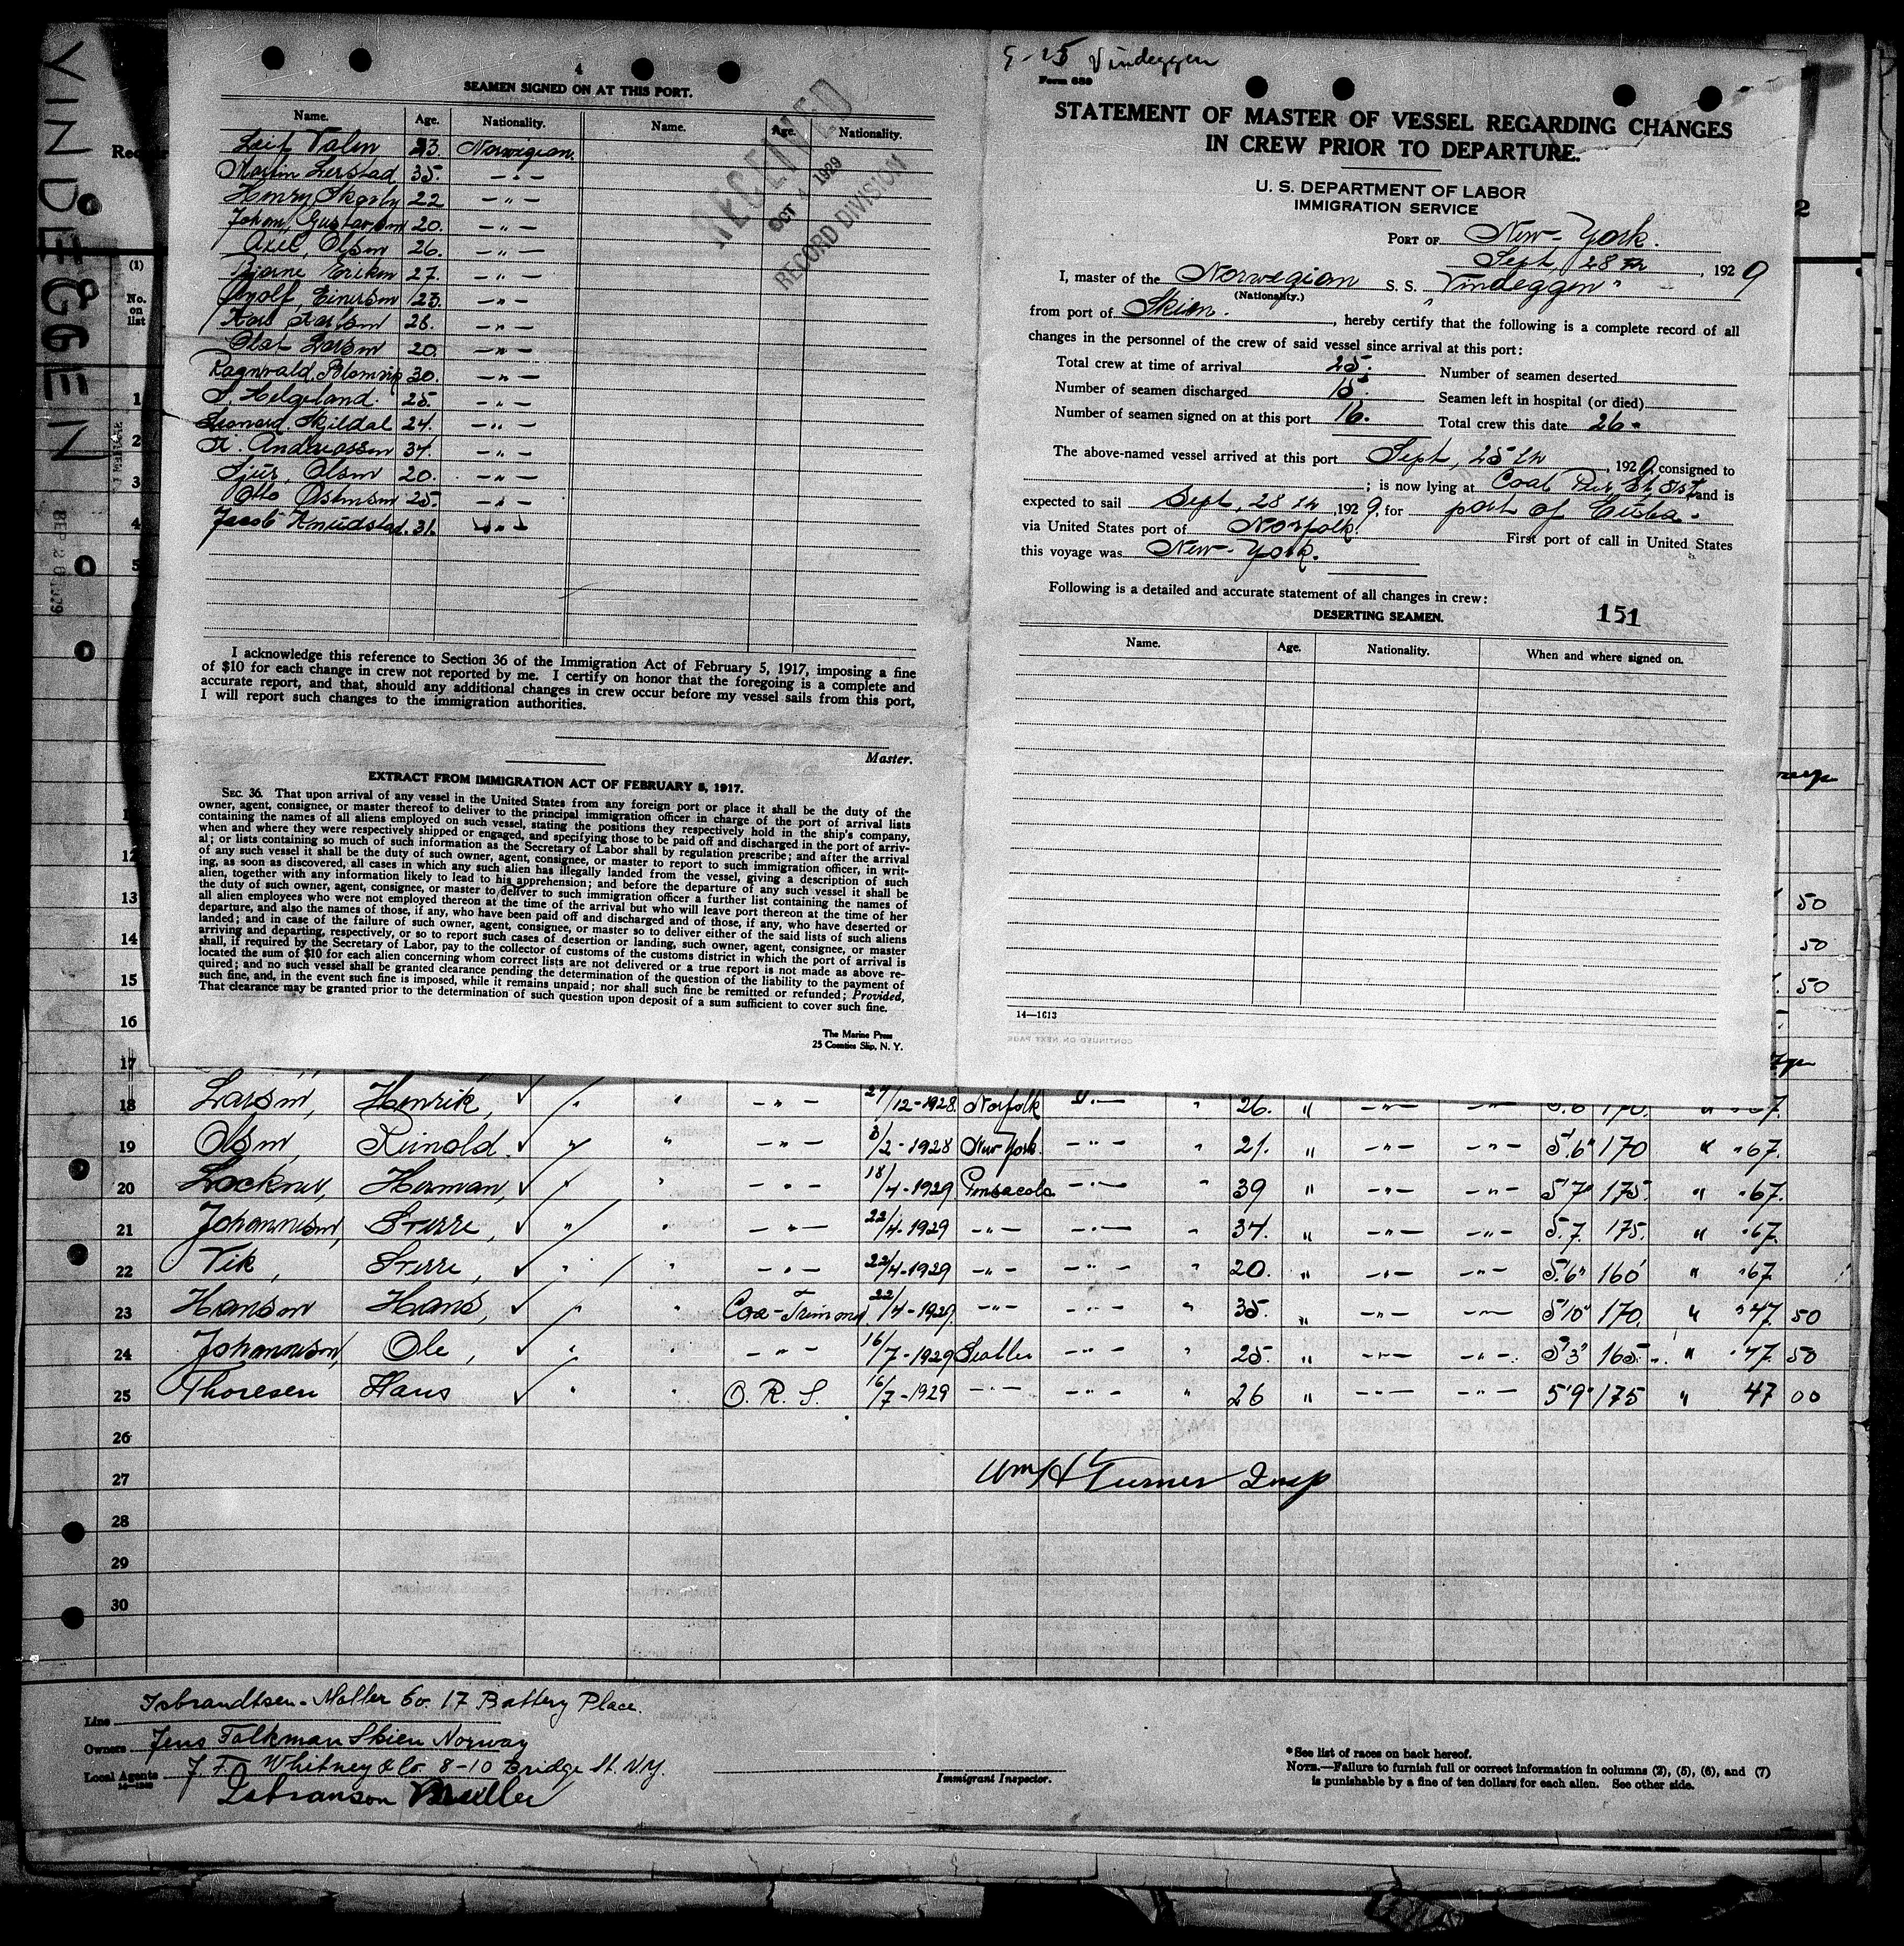 VINDEGGEN
4
SEAMEN SIGNED ON AT THIS PORT.
Name. Age. Nationality. Name. Age. Nationality.
Leif Valen 23. Norwegian.
Martin Lerstad 35. —"—
Henry Skarly 22 —"—
Johan, Gustavsen 20. —"—
Axel, Olsen 26. —"—
Bjarne Eriksen 27. —"—
Einersen 23. —"—
Karl Karlsen 28. —"—
Olaf Larsen 20. —"—
Ragnvald. Blomvik 30. —"—
S. Helgeland. 25. —"—
Leonard. Skjldal 24. —"—
Andreassen 34. —"—
Sjur, Olsen 20. —"—
Otto Ostensen 25. —"—
Jacob Knudstad. 31. —"—
RECEIVED
OCT 4 1929
RECORD DIVISION
I acknowledge this reference to Section 36 of the Immigration Act of February 5, 1917, imposing a fine
of $10 for each change in crew not reported by me. I certify on honor that the foregoing is a complete and
accurate report, and that, should any additional changes in crew occur before my vessel sails from this port,
I will report such changes to the immigration authorities.
Master.
EXTRACT FROM IMMIGRATION ACT OF FEBRUARY 5, 1917.
SEC. 36. That upon arrival of any vessel in the United States from any foreign port or place it shall be the duty of the
owner, agent, consignee, or master thereof to deliver to the principal immigration officer in charge of the port of arrival lists
containing the names of all aliens employed on such vessel, stating the positions they respectively hold in the ship's company,
when and where they were respectively shipped or engaged, and specifying those to be paid off and discharged in the port of arriv-
al; or lists containing so much of such information as the Secretary of Labor shall by regulation prescribe; and after the arrival
of any such vessel it shall be the duty of such owner, agent, consignee, or master to report to such immigration officer, in writ-
ing, as soon as discovered, all cases in which any such alien has illegally landed from the vessel, giving a description of such
alien, together with any information likely to lead to his apprehension; and before the departure of any such vessel it shall be
the duty of such owner, agent, consignee, or master to deliver to such immigration officer a further list containing the names of
all alien employees who were not employed thereon at the time of the arrival but who will leave port thereon at the time of her
departure, and also the names of those, if any, who have been paid off and discharged and of those, if any, who have deserted or
landed; and in case of the failure of such owner, agent, consignee, or master so to deliver either of the said lists of such aliens
arriving and departing, respectively, or so to report such cases of desertion or landing, such owner, agent, consignee, or master
shall, if required by the Secretary of Labor, pay to the collector of customs of the customs district in which the port of arrival is
located the sum of $10 for each alien concerning whom correct lists are not delivered or a true report is not made as above re-
quired; and no such vessel shall be granted clearance pending the determination of the question of the liability to the payment of
such fine, and, in the event such fine is imposed, while it remains unpaid; nor shall such fine be remitted or refunded; Provided,
That clearance may be granted prior to the determination of such question upon deposit of a sum sufficient to cover such fine.
The Marine Press
25 Coenties Slip, N. Y.
9-25 Vindeggen
Form 689
STATEMENT OF MASTER OF VESSEL REGARDING CHANGES
IN CREW PRIOR TO DEPARTURE.
U. S. DEPARTMENT OF LABOR
IMMIGRATION SERVICE
PORT OF New-York.
Sept, 28th, 1929
I, master of the Norwegian S. S. "Vindeggen"
(Nationality.)
from port of Skien., hereby certify that the following is a complete record of all
changes in the personnel of the crew of said vessel since arrival at this port:
Total crew at time of arrival 25. Number of seamen deserted
Number of seamen discharged 15. Seamen left in hospital (or died)
Number of seamen signed on at this port 16. Total crew this date 26.
The above-named vessel arrived at this port Sept, 25th, 1929, consigned to
; is now lying at Coal Pier, and is
expected to sail Sept, 28th, 1929, for port of Cuba.
via United States port of Norfolk. First port of call in United States
this voyage was New-York.
Following is a detailed and accurate statement of all changes in crew:
DESERTING SEAMEN. 151
Name. Age. Nationality. When and where signed on.
14—1613
(1)
No.
on
list
2
1
2
3
4
5
12
13 50
14 50
15 50
16
17
18 Larsen, Henrik, 27/12-1928 Norfolk 26. 170. 67.
19 Olsen, Reinold. —"— 3/2-1928 New York. —"— 21. " —"— —"— 5'6" 170 " 67.
20 Lockner, Herman, —"— 18/4-1929 Pensacola —"— 39 " —"— —"— 5'7" 175. " 67.
21 Johannesen, Sverre, —"— 22/4-1929 —"— —"— 34. " —"— —"— 5.7. 175. " 67.
22 Vik, Sverre, —"— 22/4-1929 —"— —"— 20. " —"— —"— 5'6" 160 " 67
23 Hansen Hans, Coa-Trimmer. 22/4-1929. —"— —"— 35. " —"— —"— 5'10" 170. " 47 50
24 Johannesen, Ole, —"— 16/7-1929 Seattle —"— 25. " —"— —"— 5'3" 165. " 47. 50
25 Thoresen Hans O. R. S. 16/7-1929 —"— —"— 26 " —"— —"— 5'9" 175 " 47 00
26
27 Wm H Turner Insp
28
29
30
Line Isbrandtsen-Moller Co. 17 Battery Place.
Owners Jens Falkman Skien Norway
Local Agents J. F. Whitney & Co. 8-10 Bridge St. N.Y.
Isbranson Mueller
Immigrant Inspector.
*See list of races on back hereof.
NOTE.—Failure to furnish full or correct information in columns (2), (5), (6), and (7)
is punishable by a fine of ten dollars for each alien. See other side.